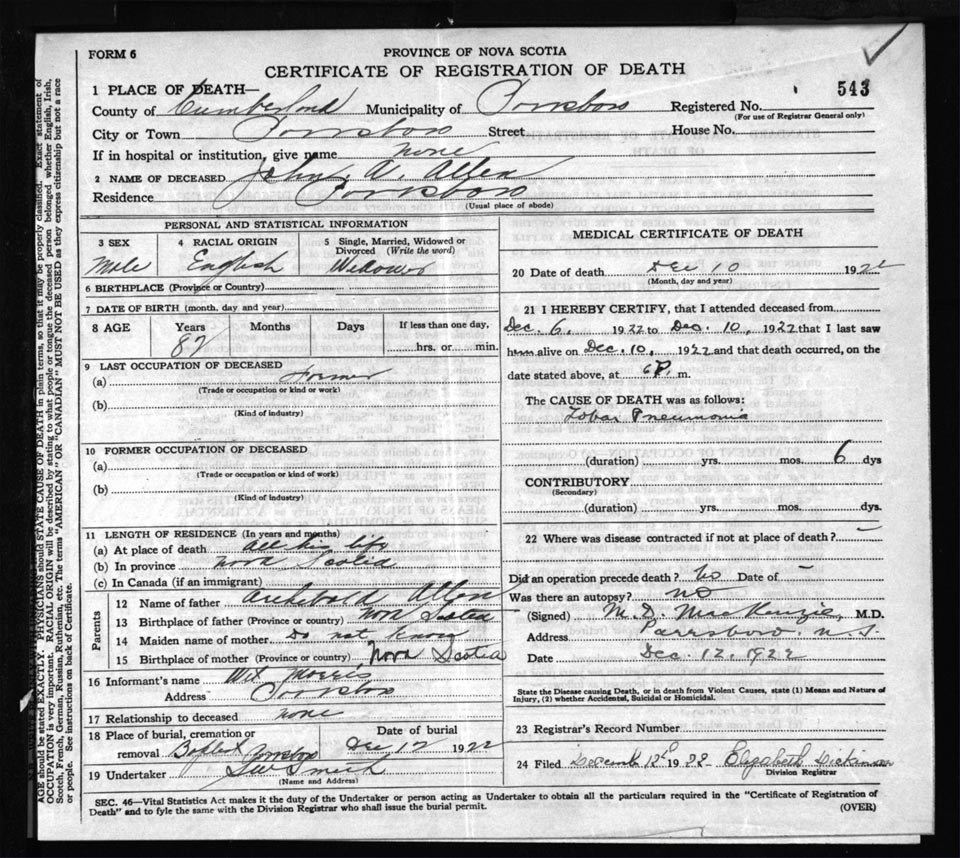 FORM 6
PROVINCE OF NOVA SCOTIA
CERTIFICATE OF REGISTRATION OF DEATH
543
1 PLACE OF DEATH—
County of Cumberland Municipality of Parrsboro Registered No.
(For use of Registrar General only)
City or Town Parrsboro Street House No.
If in hospital or institution, give name none
2 NAME OF DECEASED John A. Allen
Residence Parrsboro
(Usual place of abode)
PERSONAL AND STATISTICAL INFORMATION
3 SEX 4 RACIAL ORIGIN 5 Single, Married, Widowed or Divorced (Write the word)
Male English Widower
6 BIRTHPLACE (Province or Country)
7 DATE OF BIRTH (month, day and year)
8 AGE Years Months Days If less than one day,
87 hrs. or min.
9 LAST OCCUPATION OF DECEASED
(a) Farmer
(Trade or occupation or kind or work)
(b)
(Kind of industry)
10 FORMER OCCUPATION OF DECEASED
(a)
(Trade or occupation or kind of work)
(b)
(Kind of industry)
11 LENGTH OF RESIDENCE (In years and months)
(a) At place of death All his life
(b) In province Nova Scotia
(c) In Canada (if an immigrant)
Parents
12 Name of father Archibald Allen
13 Birthplace of father (Province or country) Nova Scotia
14 Maiden name of mother Do not know
15 Birthplace of mother (Province or country) Nova Scotia
16 Informant's name Morris
Address Parrsboro
17 Relationship to deceased none
18 Place of burial, cremation or removal Parrsboro
Date of burial
Dec 12 1922
19 Undertaker Smith
(Name and Address)
MEDICAL CERTIFICATE OF DEATH
20 Date of death Dec 10 1922
(Month, day and year)
21 I HEREBY CERTIFY, that I attended deceased from
Dec. 6, 1922 to Dec. 10, 1922 that I last saw
him alive on Dec. 10, 1922 and that death occurred, on the
date stated above, at 6 P. m.
The CAUSE OF DEATH was as follows:
Lobar Pneumonia
(duration) yrs. mos. 6 dys
CONTRIBUTORY
(Secondary)
(duration) yrs. mos. dys.
22 Where was disease contracted if not at place of death? —
Did an operation precede death? No Date of —
Was there an autopsy? no
(Signed) M. D. MacKenzie, M.D.
Address Parrsboro, N.S.
Date Dec. 12, 1922
State the Disease causing Death, or in death from Violent Causes, state (1) Means and Nature of
Injury, (2) whether Accidental, Suicidal or Homicidal.
23 Registrar's Record Number
24 Filed December 12th 1922 Elizabeth Dickinson
Division Registrar
SEC. 46—Vital Statistics Act makes it the duty of the Undertaker or person acting as Undertaker to obtain all the particulars required in the "Certificate of Registration of
Death" and to fyle the same with the Division Registrar who shall issue the burial permit. (OVER)
AGE should be stated EXACTLY. PHYSICIANS should STATE CAUSE OF DEATH in plain terms, so that it may be properly classified. Exact statement of
OCCUPATION is very important. RACIAL ORIGIN will be described by stating to what people or tongue the deceased person belonged whether English, Irish,
Scotch, French, German, Russian, Ruthenian, etc. The terms "AMERICAN" OR "CANADIAN" MUST NOT BE USED as they express citizenship but not a race
or people. See instructions on back of Certificate.